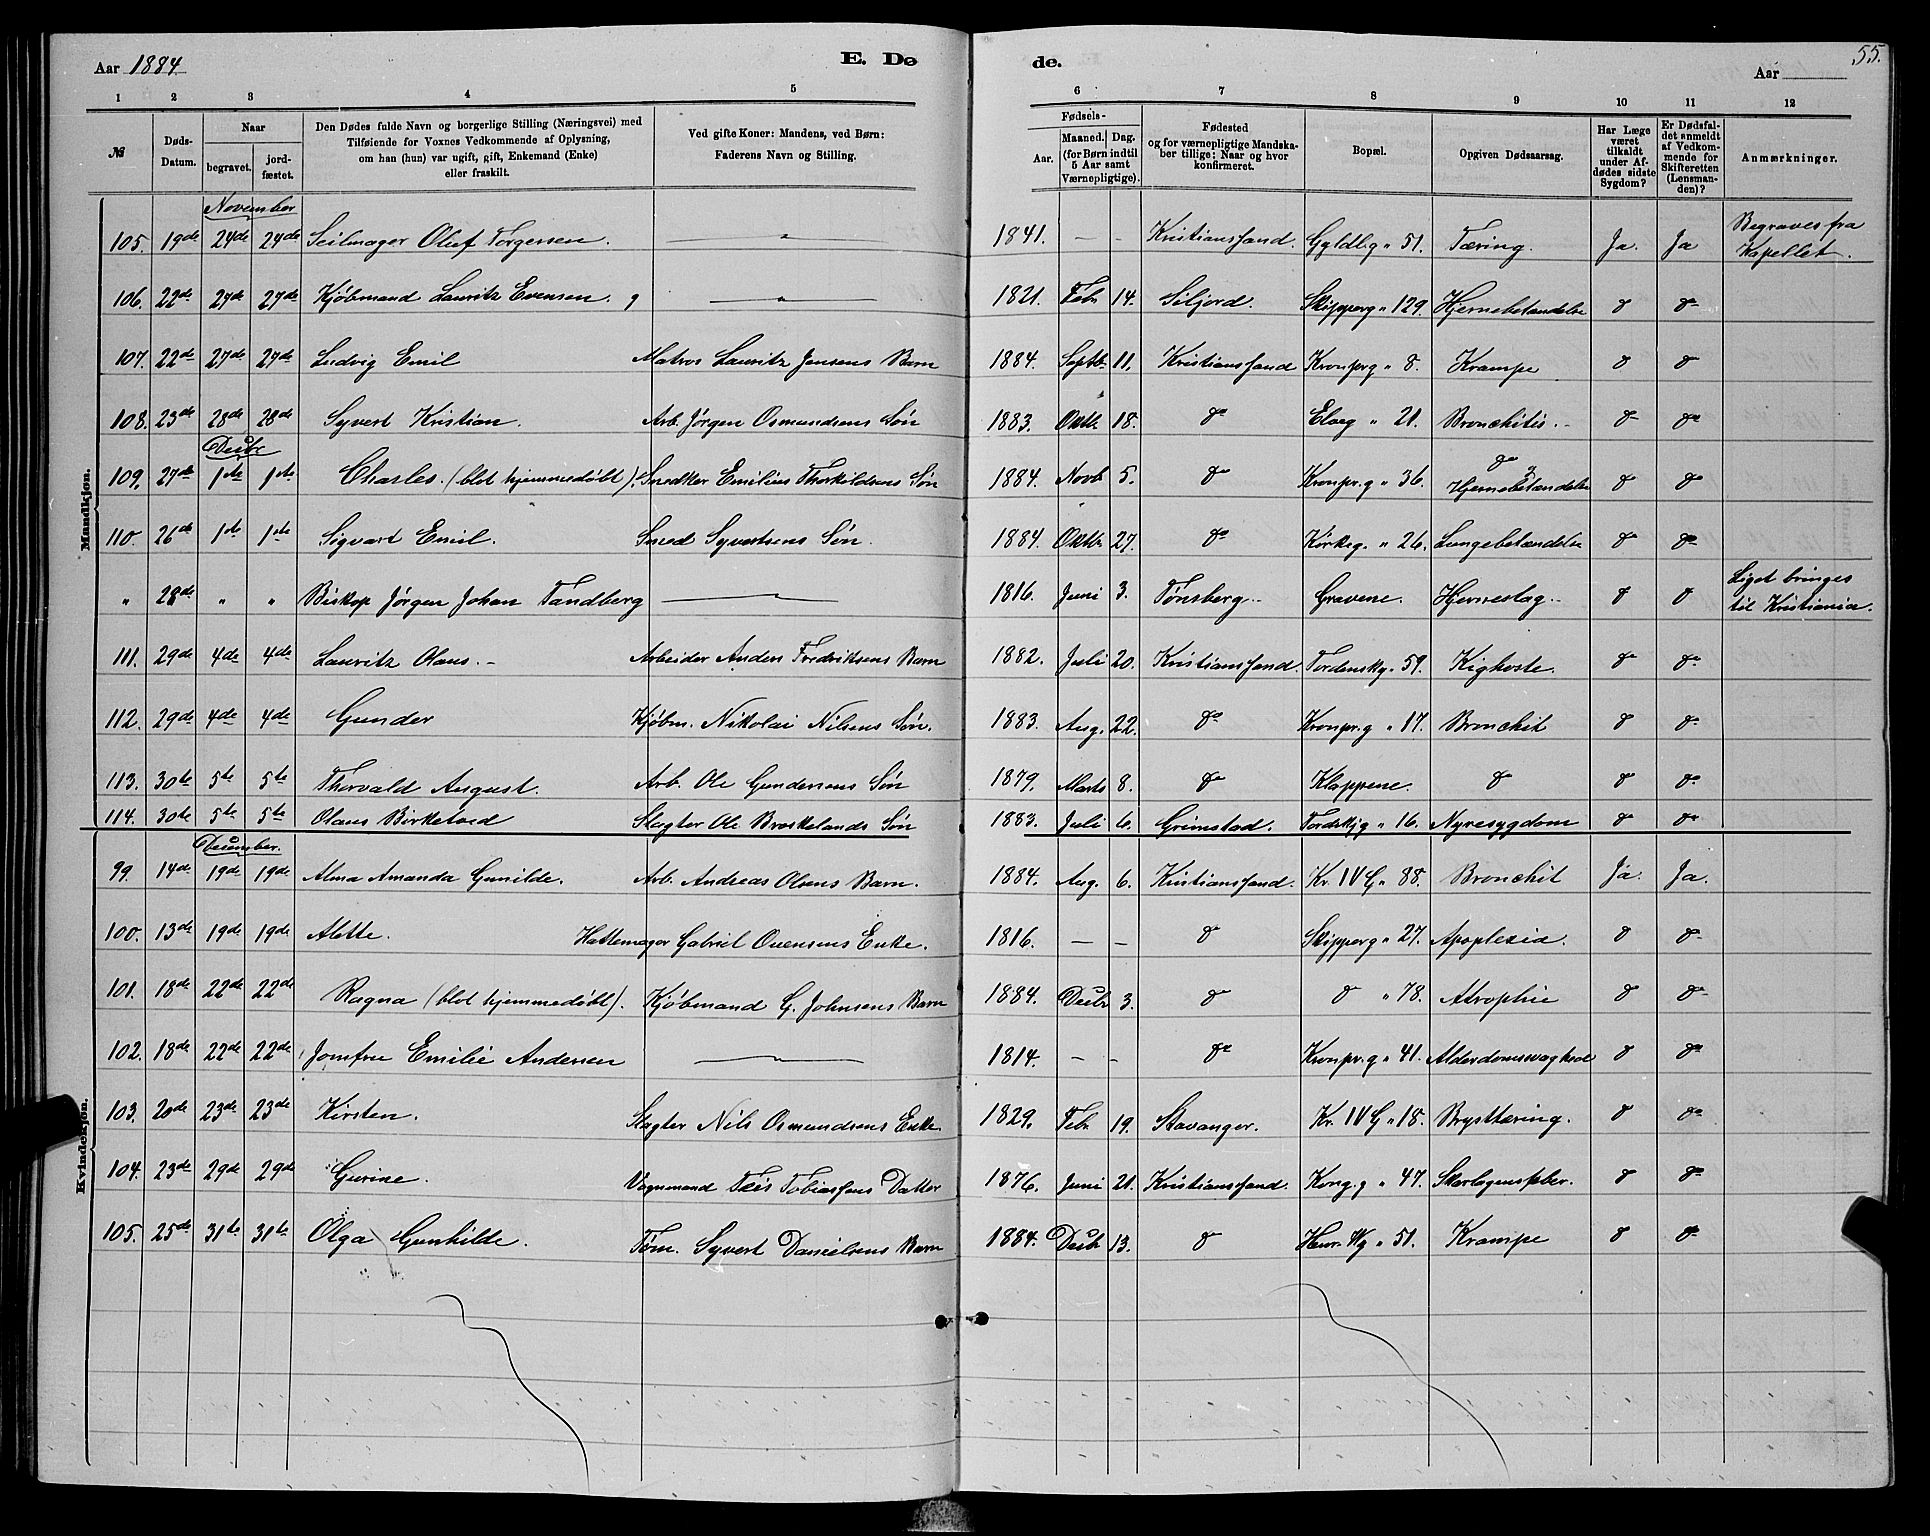 Aar 1884 E. Dø de. Aar 55.
1 2 3 4 5 6 7 8 9 10 11 12
№ Døds-Datum. Naar begravet. jordfæstet. Den Dødes fulde Navn og borgerlige Stilling (Næringsvei) med Tilføiende for Voxnes Vedkommende af Oplysning, om han (hun) var ugift, gift, Enkemand (Enke) eller fraskilt. Ved gifte Koner: Mandens, ved Børn: Faderens Navn og Stilling. Fødsels- Aar. Maaned. Dag. (for Børn indtil 5 Aar samt Værnepligtige). Fødested og for værnepligtige Mandskaber tillige: Naar og hvor konfirmeret. Bopæl. Opgiven Dødsaarsag. Har Læge været tilkaldt under Afdødes sidste Sygdom? Er Dødsfaldet anmeldt af Vedkommende for Skifteretten (Lensmanden)? Anmærkninger.
Mandkjøn.
November
105. 19de 24de 24de Seilmager Oluf Torgersen. " 1841. – – Kristianssand. Gyldl.g " 51. Tæring. Ja. Ja Begraves fra Kapellet.
106. 22de 27de 27de Kjøbmand Lauritz Evensen. " 1821. Febr 14. Siljord. Skipperg " 129. Hjernebetændelse do do
107. 22de 27de 27de Ludvig Emil Matros Lauritz Jensens Barn 1884. Septbr. 11. Kristianssand Kronprg " 8. Krampe do do
108. 23de 28de 28de Syvert Kristian. Arb. Jørgen Osmundsens Søn 1883. Oktb. 18. do Elveg " 21. Bronchitis. do do
Decbr
109. 27de 1ste 1ste Charles. (blot hjemmedøbt). Snedker Emilius Thorkildsens Søn 1884. Novb 5. do Kronpr.g " 36. do Hjernebetændelse do do
110. 26de 1ste 1ste Sigvart Emil. Smed Syvertsens Søn. 1884. Oktb. 27. do Kirkeg. " 26. Lungebetændelse do do
" 28de " " Biskop Jørgen Johan Tandberg " 1816. Juni 3. Tønsberg. Gravene. Hjerneslag. do do Liget bringes til Kristiania.
111. 29de 4de 4de Lauritz Olaus. Arbeider Anders Fredriksens Barn 1882. Juli 20. Kristianssand. Tordenskg " 59. Kighoste. do do
112. 29de 4de 4de Gunder Kjøbm. Nikolai Nilsens Søn. 1883. Aug. 22. do Kronpr.g " 17. Bronchit do do
113. 30te 5te 5te Thorvald August. Arb. Ole Gundersens Søn 1879. Marts 8. do Klappene. do do do
114. 30te 5te 5te Olaus Birketved Slagter Ole Breskelands Søn 1883. Juli 6. Grimstad. Tordskjg " 16. Nyresygdom do do
Kvindekjøn.
December.
99. 14de 19de 19de Alma Amanda Gunilde. Arb. Andreas Olsens Barn. 1884. Aug. 6. Kristianssand. Kr. IV G " 88. Bronchit Ja. Ja.
100. 13de 19de 19de Alette. Hattemager Gabriel Ovensens Enke. 1816. – – do Skipperg " 27. Apoplexia. do do
101. 18de 22de 22de Ragna (blot hjemmedøbt). Kjøbmand G. Johnsens Barn 1884. Decbr 3. do do " 78. Atrophie do do
102. 18de 22de 22de Jomfru Emilie Andersen " 1814. – – do Kronpr.g " 41. Alderdomssvaghed do do
103. 20de 23de 23de Kirsten. Slagter Nils Osmundsens Enke 1829. Febr 19. Stavanger. Kr. IV G " 18. Brysttæring. do do
104. 23de 29de 29de Gurine. Vognmand Tæis Tobiassens Datter 1876. Juni 21. Kristianssand. Kong.g " 47. Skarlagensfeber. do do
105. 25de 31te 31te Olga Gunhilde. Tøm. Syvert Danielsens Barn 1884. Decbr 13. do Henr. Wg " 51. Krampe do do